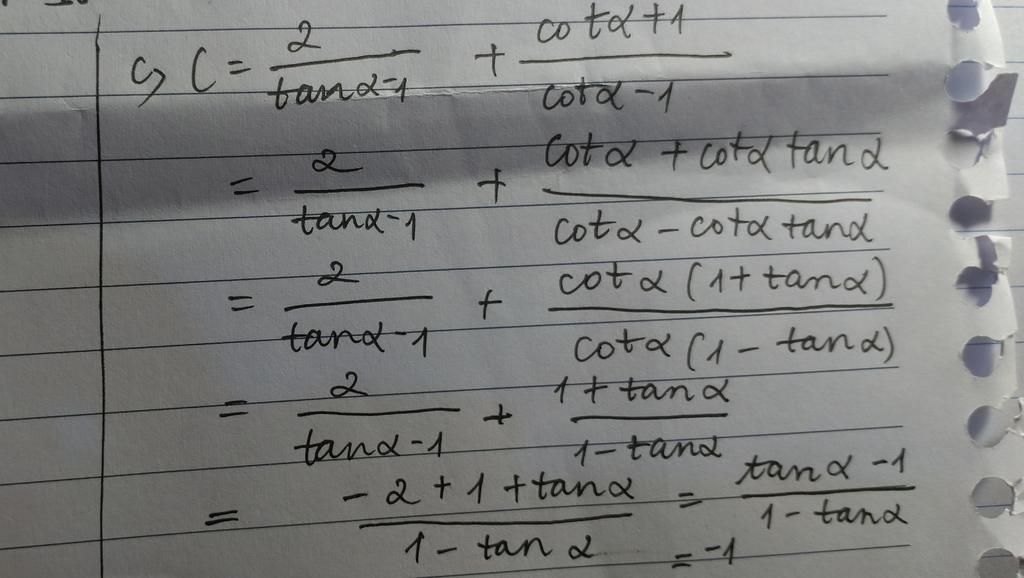 c, C = 2/(tanα-1) + (cotα+1)/(cotα-1)
= 2/(tanα-1) + (cotα + cotα tanα)/(cotα - cotα tanα)
= 2/(tanα-1) + (cotα(1+tanα))/(cotα(1-tanα))
= 2/(tanα-1) + (1+tanα)/(1-tanα)
= (-2+1+tanα)/(1-tanα) = (tanα-1)/(1-tanα)
= -1